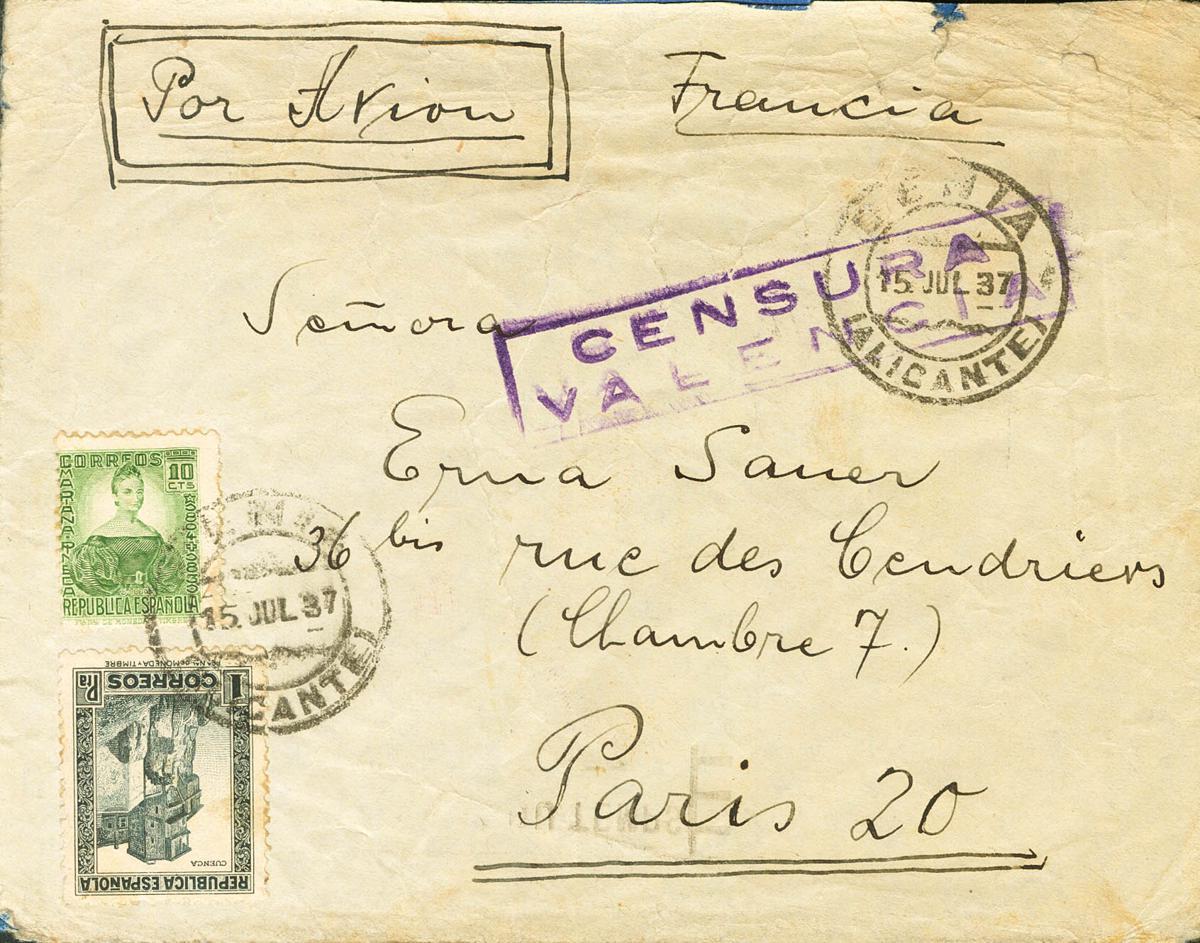 Por Avion
Francia
DENIA
15 JUL 37
(ALICANTE)
CENSURA
VALENCIA
Señora
Erna Sauer
36 bis rue des Cendriers
(Chambre 7.)
Paris 20
CORREOS
10
CTS
MARIANA PINEDA
REPUBLICA ESPAÑOLA
15. JUL 37
ICANTE)
1 CORREOS Pta
CUENCA
REPUBLICA ESPAÑOLA